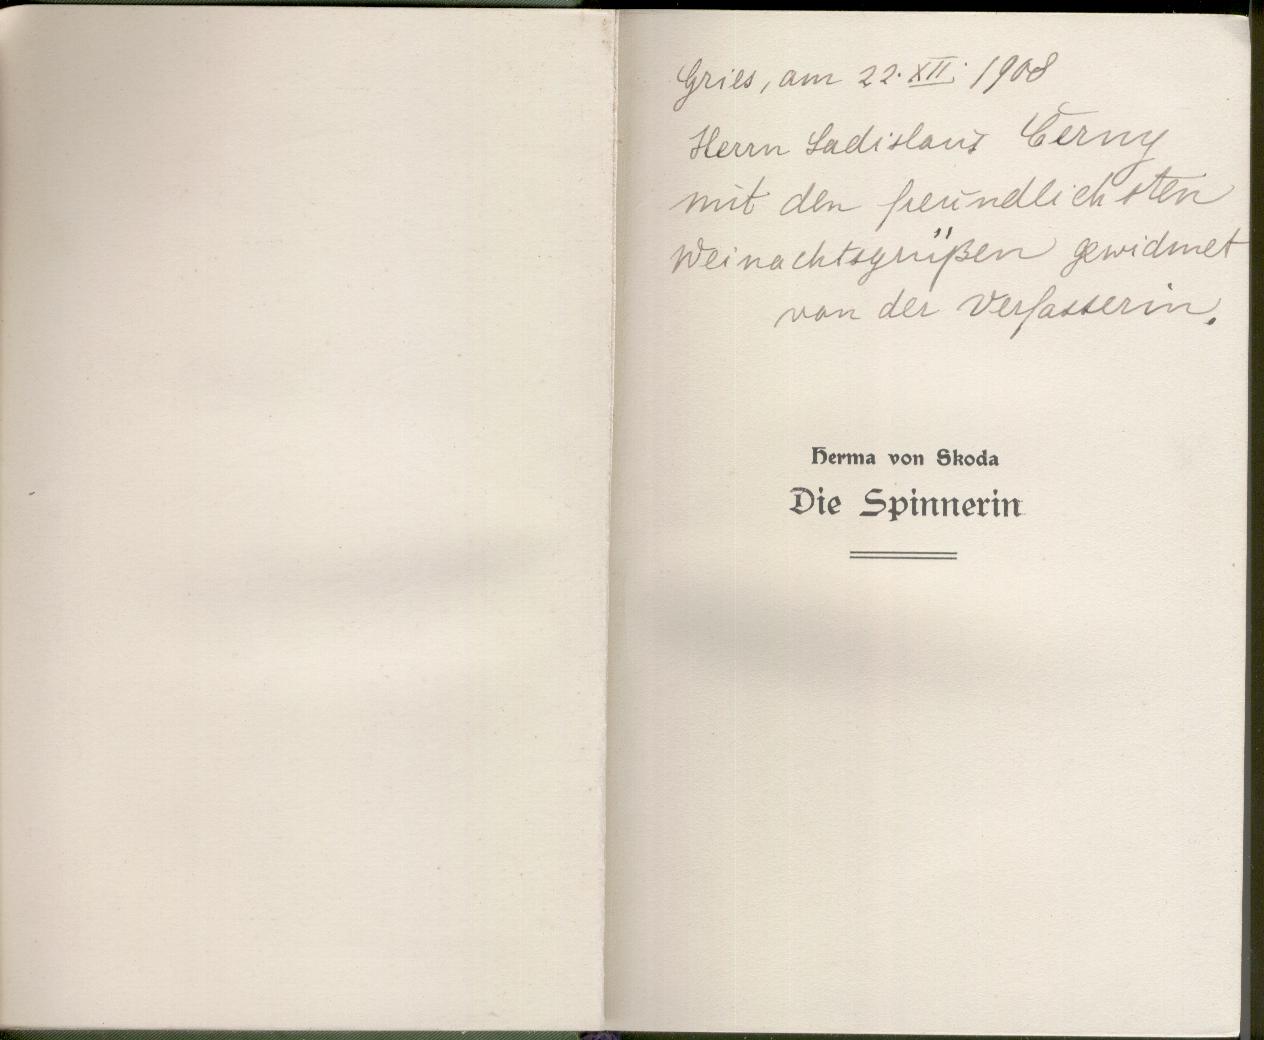 Gries, am 22. XII. 1908
Herrn Ladislaus Černy
mit den freundlichsten
Weinachtsgrüßen gewidmet
von der Verfasserin.
Herma von Skoda
Die Spinnerin